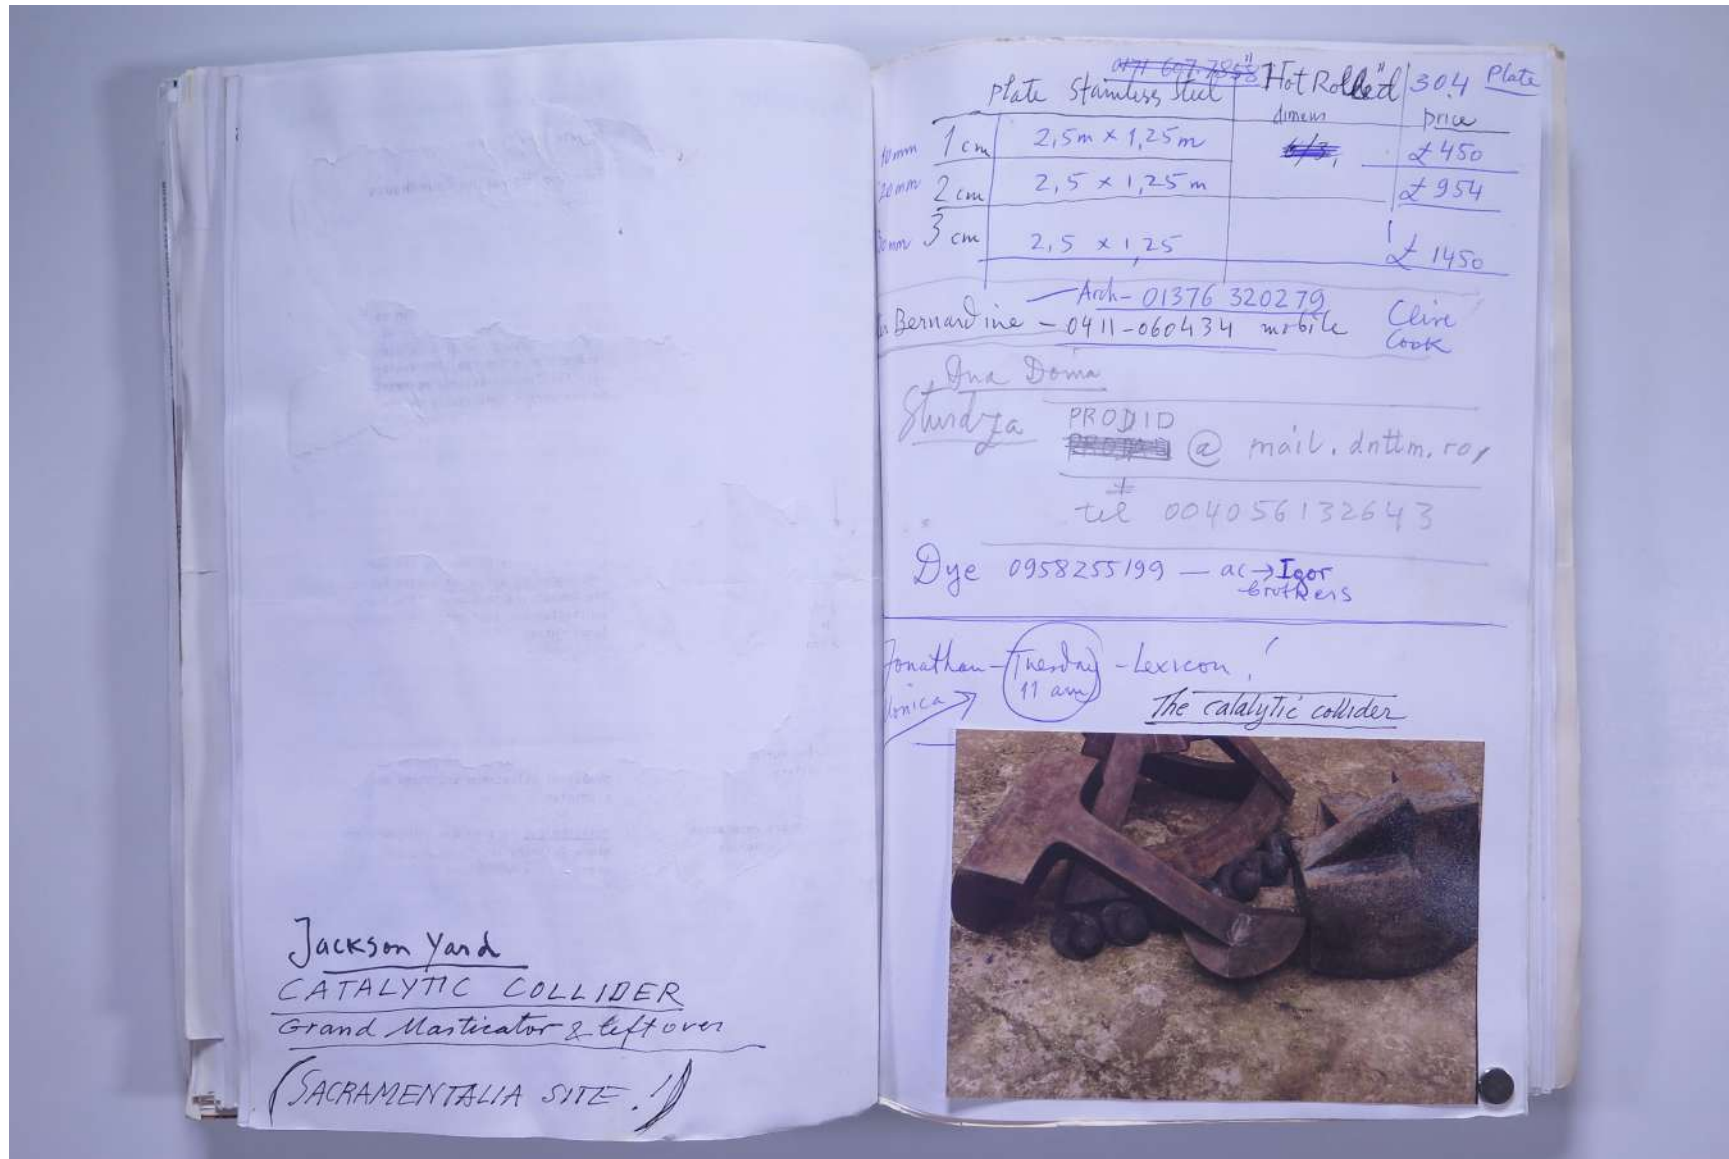 Jackson Yard
CATALYTIC COLLIDER
Grand Masticator & leftover
(SACRAMENTALIA SITE!)
0171 607.7858
plate Stainless Steel "Hot Rolled" 304 Plate
dimens price
10mm 1 cm 2,5m × 1,25m £450
20mm 2 cm 2,5 × 1,25m £954
30mm 3 cm 2,5 × 1,25 £1450
Arch- 01376 320279
Bernardine - 0411-060434 mobile Clive
Cook
Ana Doina
Sturdza PRODID
@ mail.dnttm.ro
tel 004056132643
Dye 0958255199 — ac → Igor
brothers
Jonathan - Tuesday - Lexicon!
11 am
The catalytic collider